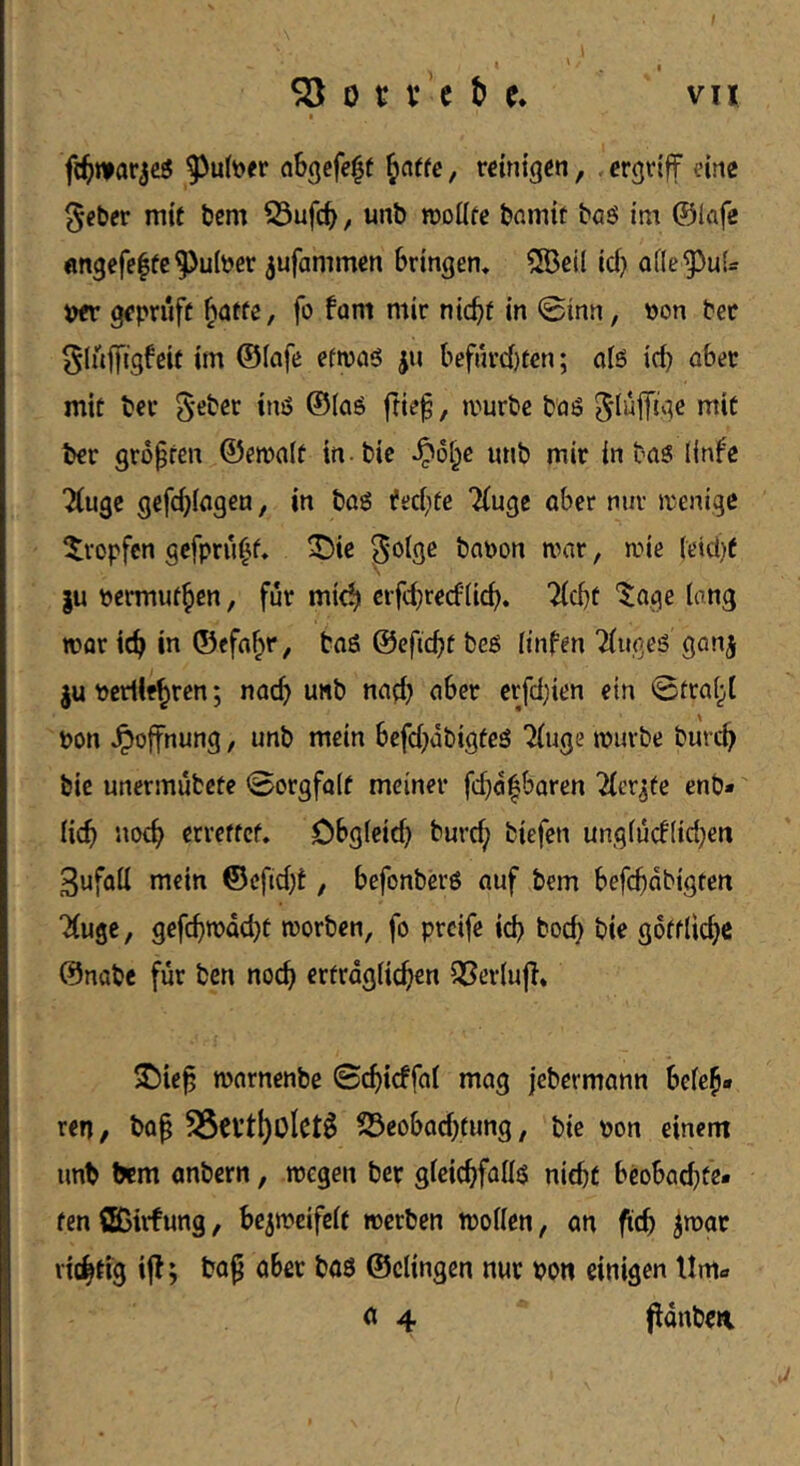 Vorrede. VII
schwarzes Pulver abgesetzt hatte, reinigen, ergriff eine
Feder mit dem Busch, und wollte damit das im Glase
angesetzte Pulver zusammen bringen. Weil ich alle Pul-
ver geprüft hatte, so kam mir nicht in Sinn, von der
Flüssigkeit im Glase etwas zu befürchten; als ich aber
mit der Feder ins Glas stieß, wurde das Flüssige mit
der größten Gewalt in die Höhe und mir in das linke
Auge geschlagen, in das rechte Auge aber nur wenige
Tropfen gesprützt. Die Folge davon war, wie leicht
zu vermuthen, für mich erschrecklich. Acht Tage lang
war ich in Gefahr, das Gesicht des linken Auges ganz
zu verliehren; nach und nach aber erschien ein Strahl
von Hoffnung, und mein beschädigtes Auge wurde durch
die unermüdete Sorgfalt meiner schätzbaren Aerzte end-
lich noch errettet. Obgleich durch diesen unglücklichen
Zufall mein Gesicht, besonders auf dem beschädigten
Auge, geschwächt worden, so preise ich doch die göttliche
Gnade für den noch erträglichen Verlust.
Dieß warnende Schicksal mag jedermann beleh-
ren, daß Bertholets Beobachtung, die von einem
und dem andern, wegen der gleichfalls nicht beobachte-
ten Wirkung, bezweifelt werden wollen, an sich zwar
richtig ist; daß aber das Gelingen nur von einigen Um-
a 4 ständen